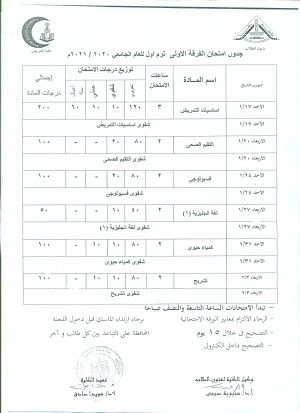 شئون الطلاب
كلية التمريض
جدول امتحان الفرقة الاولى ترم اول للعام الجامعي ٢٠٢٠ / ٢٠٢١م
اليوم والتاريخ اسم المادة ساعات الامتحان توزيع درجات الامتحان إجمالي درجات المادة
تحريرى شفوى عملى اعمال السنة
الاحد ١/١٧ اساسيات التمريض ٣ ١٢٠ ١٠ ١٠ ٦٠ ٢٠٠
الاحد ١/١٧ شفوى اساسيات التمريض
الاربعاء ١/٢٠ التقييم الصحى ٢ ٨٠ ٢٠ - - ١٠٠
الاربعاء ١/٢٠ شفوى التقييم الصحى
الاحد ١/٢٤ فسيولوجى ٢ ٨٠ ٢٠ - - ١٠٠
الاحد ١/٢٤ شفوى فسيولوجى
الاربعاء ١/٢٧ لغة انجليزية (١) ٢ ٤٠ ١٠ - - ٥٠
الاربعاء ١/٢٧ شفوى لغة انجليزية (١)
الاحد ١/٣١ كمياء حيوى ٢ ٨٠ ١٠ ١٠ - ١٠٠
الاحد ١/٣١ شفوى كمياء حيوى
الاربعاء ٢/٣ تشريح ٢ ٨٠ ١٠ ١٠ - ١٠٠
الاربعاء ٢/٣ شفوى تشريح
- تبدأ الامتحانات الساعة التاسعة والنصف صباحا
- الرجاء الالتزام بمعايير الورقة الامتحانية برجاء ارتداء الماسك قبل دخول اللجنة
- التصحيح في خلال ١٥ يوم المحافظة على التباعد بين كل طالب و آخر
- التصحيح داخل الكنترول
وكيل الكلية لشئون الطلاب
عميد الكلية